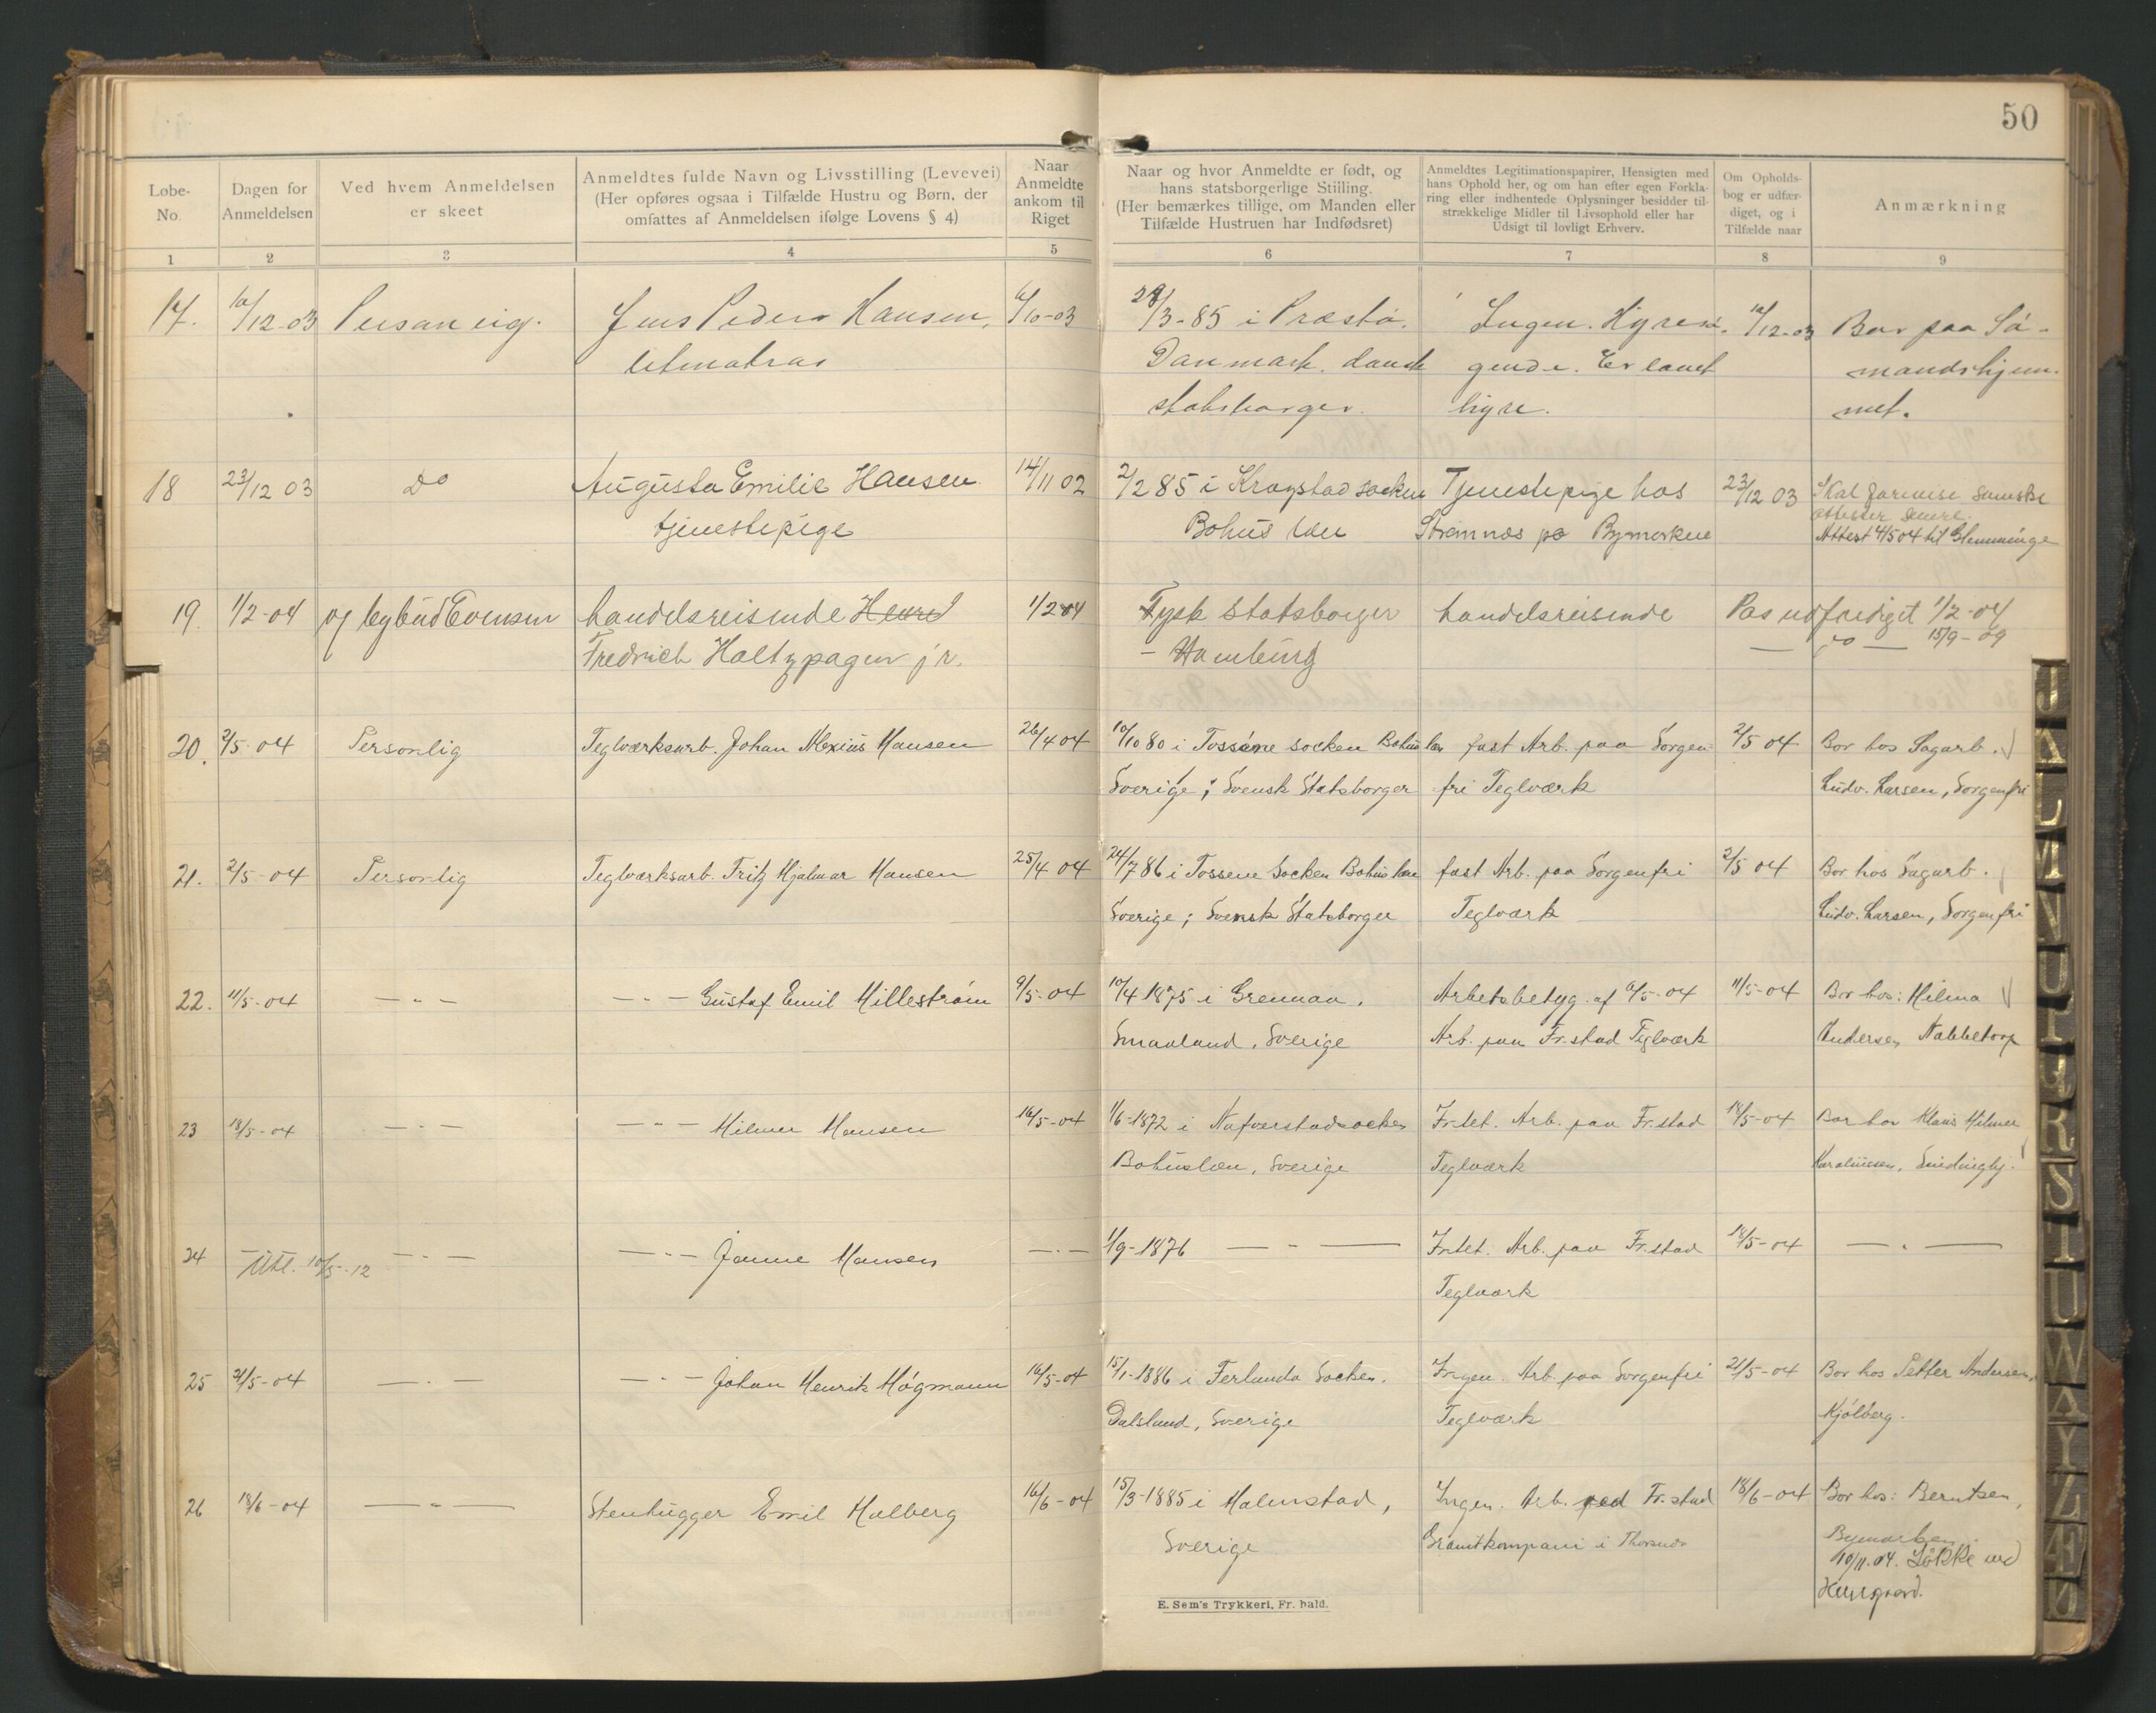 50
Løbe-No.
Dagen for Anmeldelsen
Ved hvem Anmeldelsen er skeet
Anmeldtes fulde Navn og Livsstilling (Levevei)
(Her opføres ogsaa i Tilfælde Hustru og Børn, der
omfattes af Anmeldelsen ifølge Lovens § 4)
Naar Anmeldte ankom til Riget
Naar og hvor Anmeldte er født, og
hans statsborgerlige Stilling.
(Her bemærkes tillige, om Manden eller
Tilfælde Hustruen har Indfødsret)
Anmeldtes Legitimationspapirer, Hensigten med
hans Ophold her, og om han efter egen Forkla-
ring eller indhentede Oplysninger besidder til-
strækkelige Midler til Livsophold eller har
Udsigt til lovligt Erhverv.
Om Opholds-
bog er udfær-
diget, og i
Tilfælde naar
Anmærkning
1 2 3 4 5 6 7 8 9
17. 10/12-03 Jens Peder Hansen, /10-03 /3-85 i Præstø. Ingen. Hyresø- 10/12-03 Bor paa Sø-
Danmark. dansk gende. Er lovet mandshjem-
statsborger. hyre. met.
18 23/12 03 Do Augusta Emilie Hansen 14/11 02 2/2 85 i Krogstad socken Tjenestepige hos 23/12 03 Skal svenske
tjenestepige Bohus læn Strømnæs på Bymarken
Attest 4/5 04 til Glemminge
19. 1/2-04 og Evensen handelsreisende Henrd 1/2 04 Tysk Statsborger handelsreisende Pas udfærdiget 1/2-04
Fredrich Holtzpagen jr. - Hamburg — do — 15/9-09
20. 2/5-04 Personlig Teglværksarb. Johan Alexius Hansen 26/4 04 10/10 80 i Tossene socken Bohus læn fast Arb. paa Sorgen- 2/5 04 Bor hos Sagarb.
Sverige; Svensk Statsborger fri Teglværk Ludv. Larsen, Sorgenfri
21. 2/5-04 Personlig Teglværksarb. Fritz Hjalmar Hansen 25/4 04 24/7 86 i Tossene Socken Bohus læn fast Arb. paa Sorgenfri 2/5 04 Bor hos Sagarb.
Sverige; Svensk Statsborger Teglværk Ludv. Larsen, Sorgenfri
22. 11/5-04 — " — — " — Gustaf Emil Hilleström 9/5-04 10/4 1875 i Grennaa, Arbetsbetyg af 6/5-04 11/5-04 Bor hos: Hilma
Smaaland, Sverige Arb. paa Fr.stad Teglværk Andersen Nabbetorp
23 18/5-04 — " — — " — Hilmer Hansen 16/5-04 1/6-1872 i Nafverstad socken Intet. Arb. paa Fr.stad 18/5-04 Bor hos Klaus Hilmer
Bohuslæn, Sverige Teglværk
24 — " — — " — — " — Janne Hansen — " — 1/9-1876 — " — Intet. Arb. paa Fr.stad 18/5-04 — " —
Utl. 10/5-12 Teglværk
25 21/5-04 — " — — " — Johan Henrik Högmann 16/5-04 15/1-1886 i Ferlunda Socken. Ingen. Arb. paa Sorgenfri 21/5-04 Bor hos Petter Andersen,
Dalsland, Sverige Teglværk Kjölberg.
26 18/6-04 — " — Stenhugger Emil Halberg 16/6-04 15/3-1885 i Halmstad, Ingen. Arb. ved Fr.stad 18/6-04 Bor hos: Berntsen,
Sverige Granitkompani i Thorsnes Bymarken.
10/11.04. Løkke ved
E. Sem's Trykkeri, Fr. hald.
J
A
L
M
N
O
P
Q
R
S
T
U
W
A
Y
Z
Æ
Ø